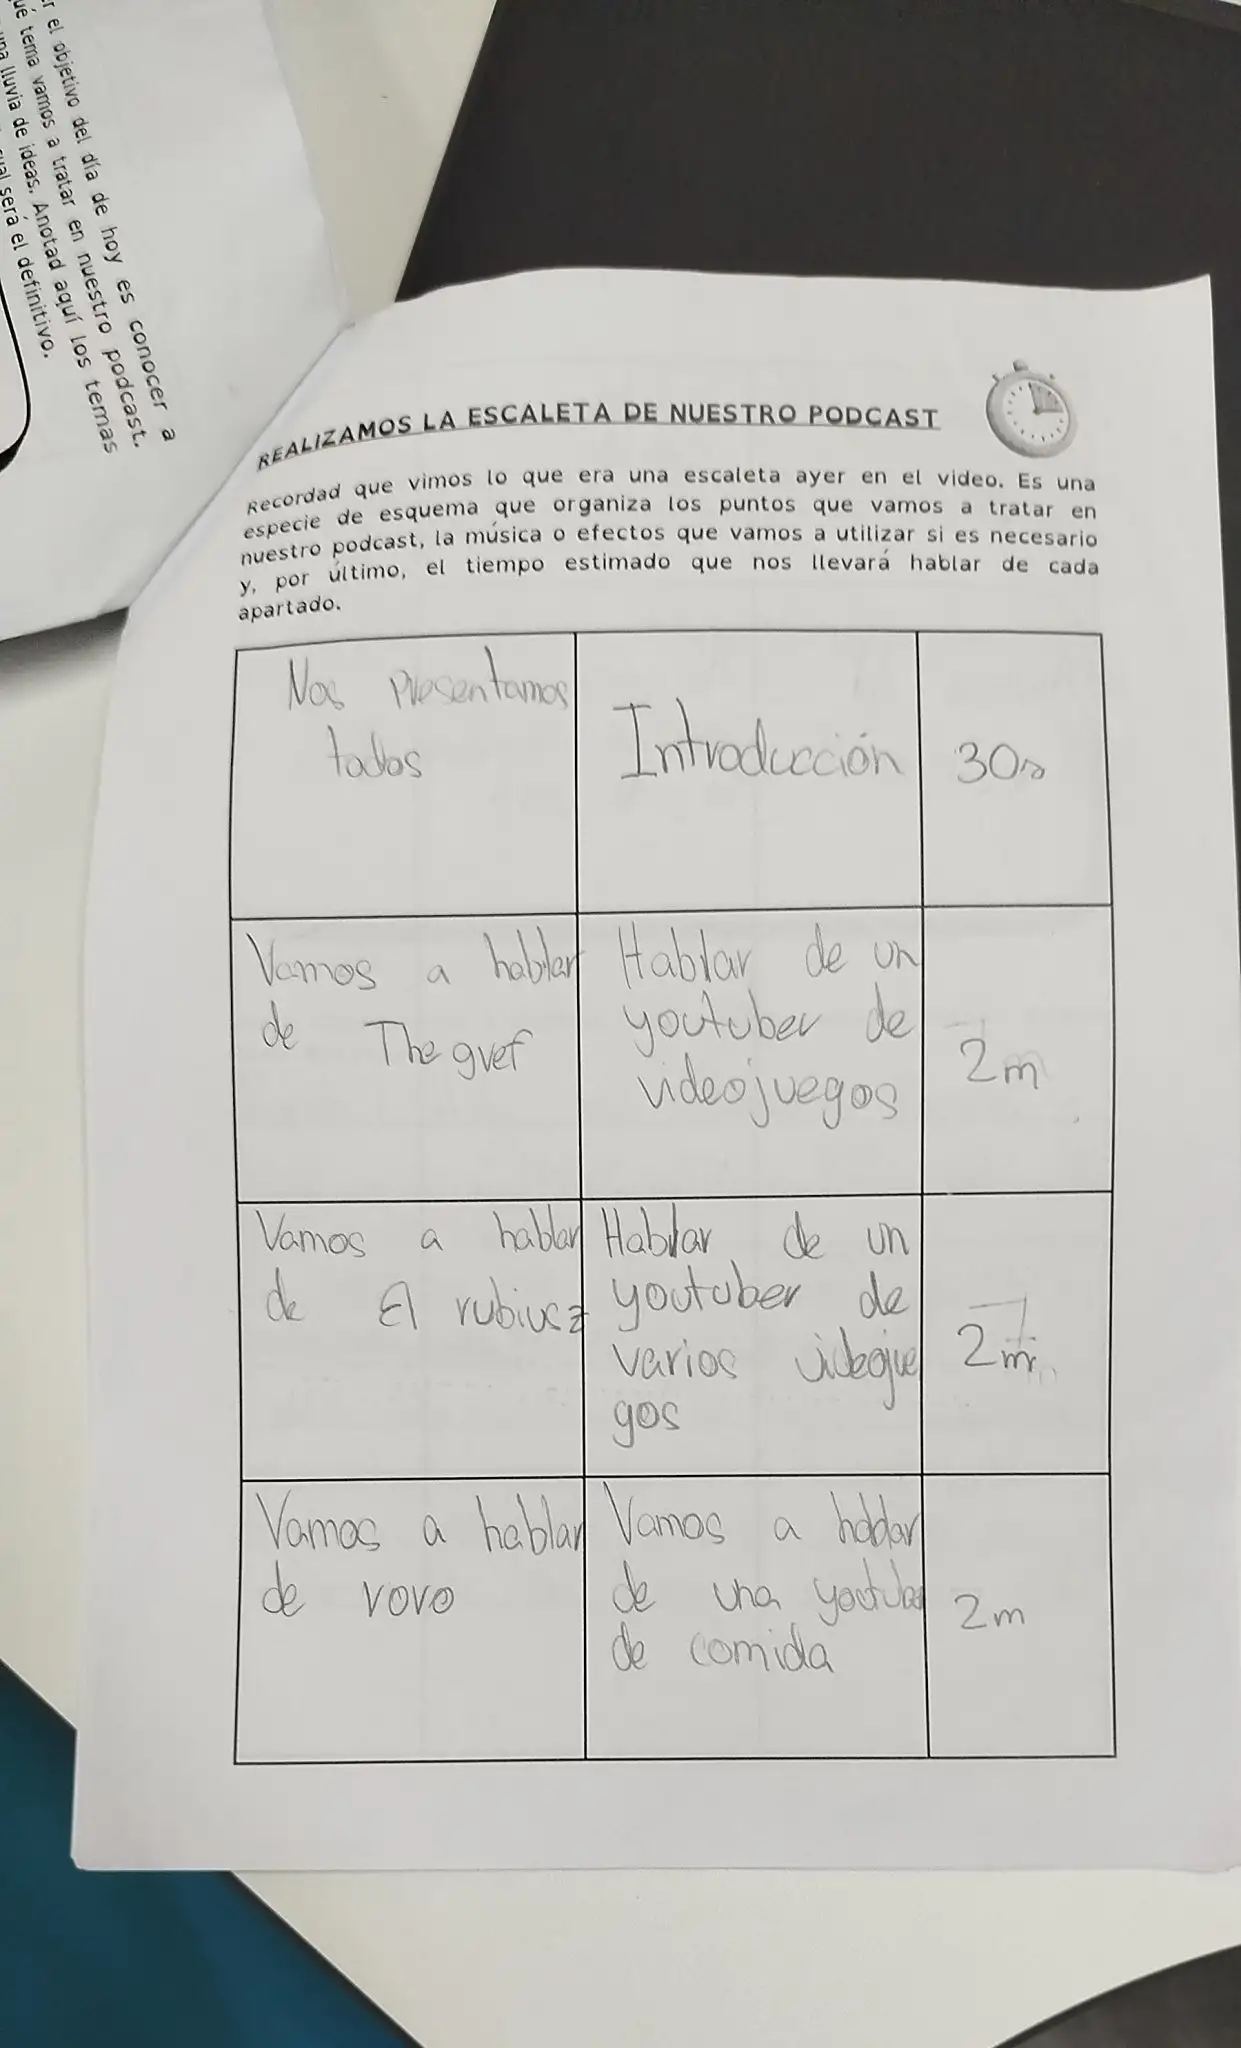 r el objetivo del día de hoy es conocer a
ué tema vamos a tratar en nuestro podcast.
una lluvia de ideas. Anotad aquí los temas
será el definitivo.
REALIZAMOS LA ESCALETA DE NUESTRO PODCAST
Recordad que vimos lo que era una escaleta ayer en el video. Es una
especie de esquema que organiza los puntos que vamos a tratar en
nuestro podcast, la música o efectos que vamos a utilizar si es necesario
y, por último, el tiempo estimado que nos llevará hablar de cada
apartado.
Nos presentamos
todos
Introducción
30s
Vamos a hablar
de The gref
Hablar de un
youtuber de
videojuegos
2m
Vamos a hablar
de El rubiusz
Hablar de un
youtuber de
varios videojue
gos
2m
Vamos a hablar
de roro
Vamos a hablar
de una youtuber
de comida
2m